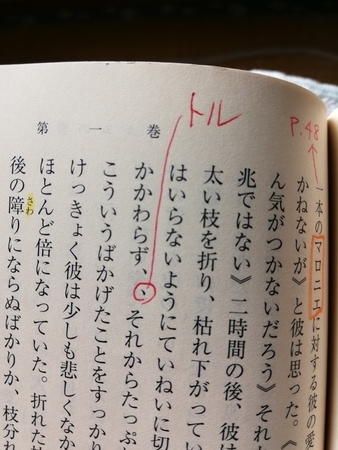 トル
P.48
第一巻
一本のマロニエに対する彼の愛
かねないが》と彼は思った。《
ん気がつかないだろう》それ
兆ではない》二時間の後、彼は
太い枝を折り、枯れ下がってい
はいらないようにていねいに切
かかわらず、、それからたっぷ
こういうばかげたことをすっかり
けっきょく彼は少しも悲しくなか
ほとんど倍になっていた。折れた
さわ
後の障りにならぬばかりか、枝分れ